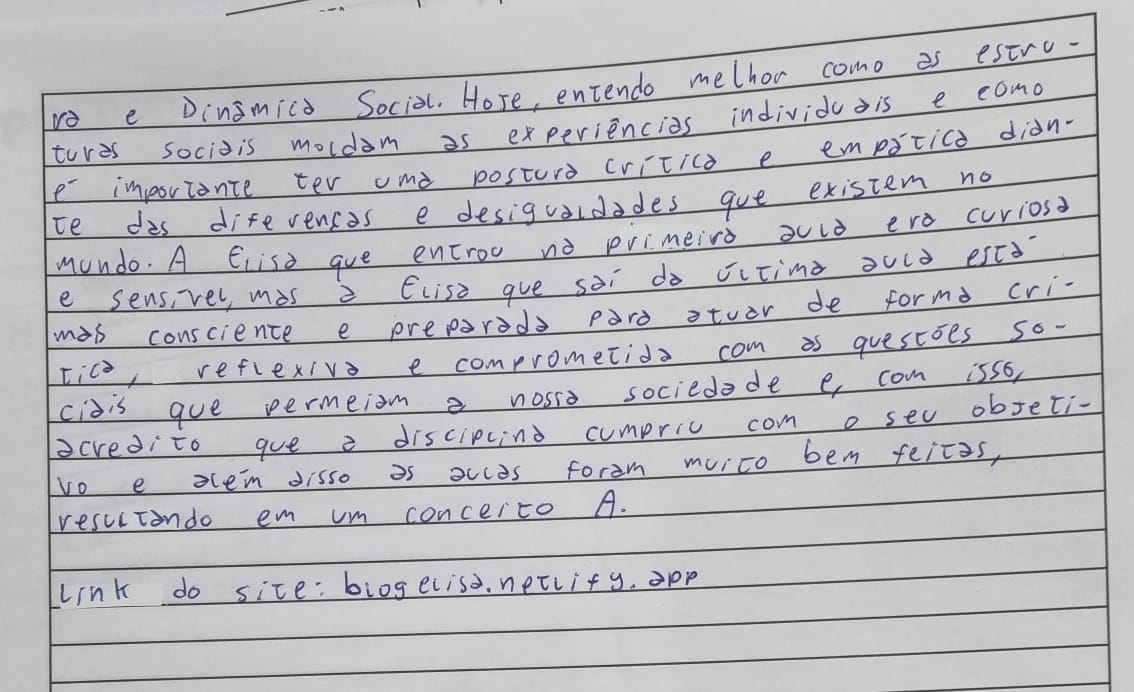 ra e Dinâmica Social. Hoje, entendo melhor como as estru-
turas sociais moldam as experiências individuais e como
é importante ter uma postura crítica e empática dian-
te das diferenças e desigualdades que existem no
mundo. A Elisa que entrou na primeira aula era curiosa
e sensível, mas a Elisa que sai da última aula está
mais consciente e preparada para atuar de forma crí-
tica, reflexiva e comprometida com as questões so-
ciais que permeiam a nossa sociedade e, com isso,
acredito que a disciplina cumpriu com o seu objeti-
vo e além disso as aulas foram muito bem feitas,
resultando em um conceito A.
Link do site: blogelisa.netlify.app